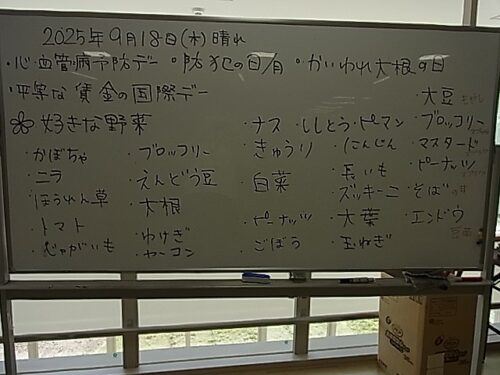 2025年9月18日(木)晴れ
・心血管病予防デー ・防犯の日 ・かいわれ大根の日
・平等な賃金の国際デー
好きな野菜
・かぼちゃ
・ニラ
ほうれん草
・トマト
・じゃがいも
・ブロッコリー
・えんどう豆
・大根
・わけぎ
・ヤーコン
・ナス ・ししとう・ピーマン
・きゅうり
・白菜
・ピーナッツ
・ごぼう
・にんじん
・長いも
・ズッキーニ
・大葉
・玉ねぎ
・大豆
・ブロッコリー
・マスタード
・ピーナッツ
・そば
・エンドウ
豆苗